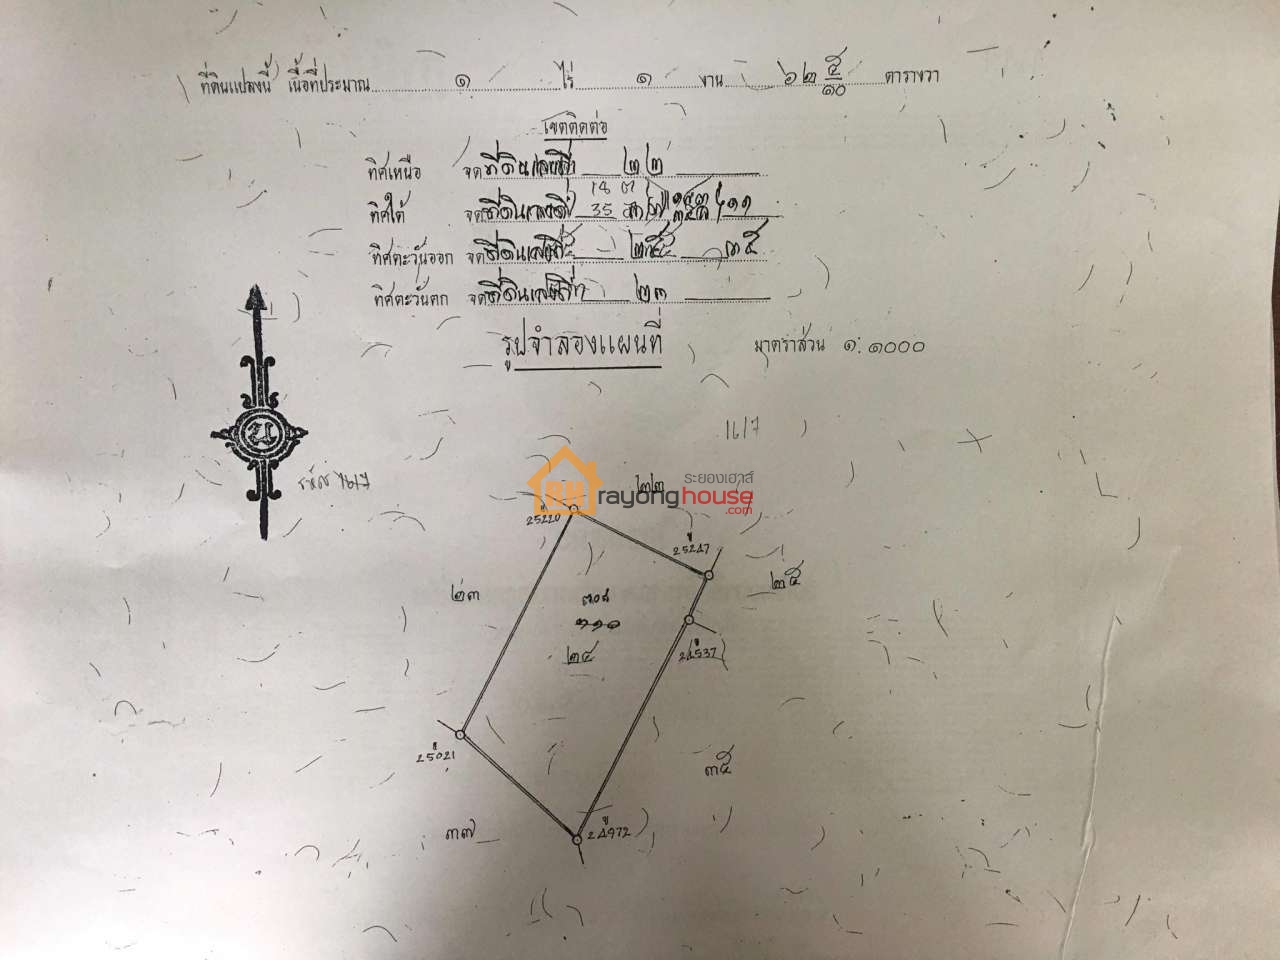 ที่ดินแปลงนี้ เนื้อที่ประมาณ ๑ ไร่ ๑ งาน ๖๒ ๕/๑๐ ตารางวา
เขตติดต่อ
ทิศเหนือ จดที่ดินเลขที่ ๒๒
ทิศใต้ จดที่ดินเลขที่
ทิศตะวันออก จดที่ดินเลขที่ ๒๕ ๓๕
ทิศตะวันตก จดที่ดินเลขที่ ๒๓
รูปจำลองแผนที่ มาตราส่วน ๑:๑๐๐๐
น
๒๒
ระยองเฮาส์
rayonghouse
.com
25220
25247
๒๕
๒๓
๒๔
24537
25021
๓๕
๓๗
24972